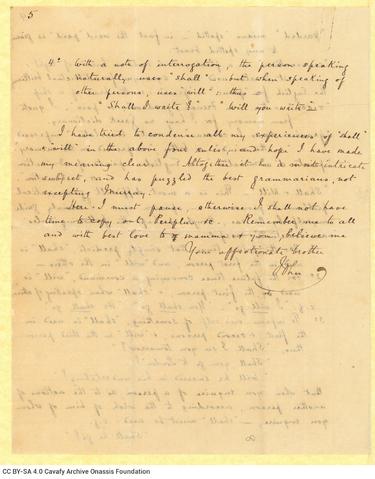 5
4° With a note of interrogation, the person speaking
naturally uses "shall" but when speaking of
other persons, uses "will": thus
"Shall I write?" "Will you write?"
I have tried to condense all my experiences of "shall"
"will" in the above four rules, and hope I have made
my meaning clear. Altogether it is a most intricate
subject, and has puzzled the best grammarians, not
excepting Murray.
Here I must pause, otherwise I shall not have
time to copy out &c. Remember me to all
and with best love to mamma & you, believe me
Your affectionate brother
John
8
CC BY-SA 4.0 Cavafy Archive Onassis Foundation